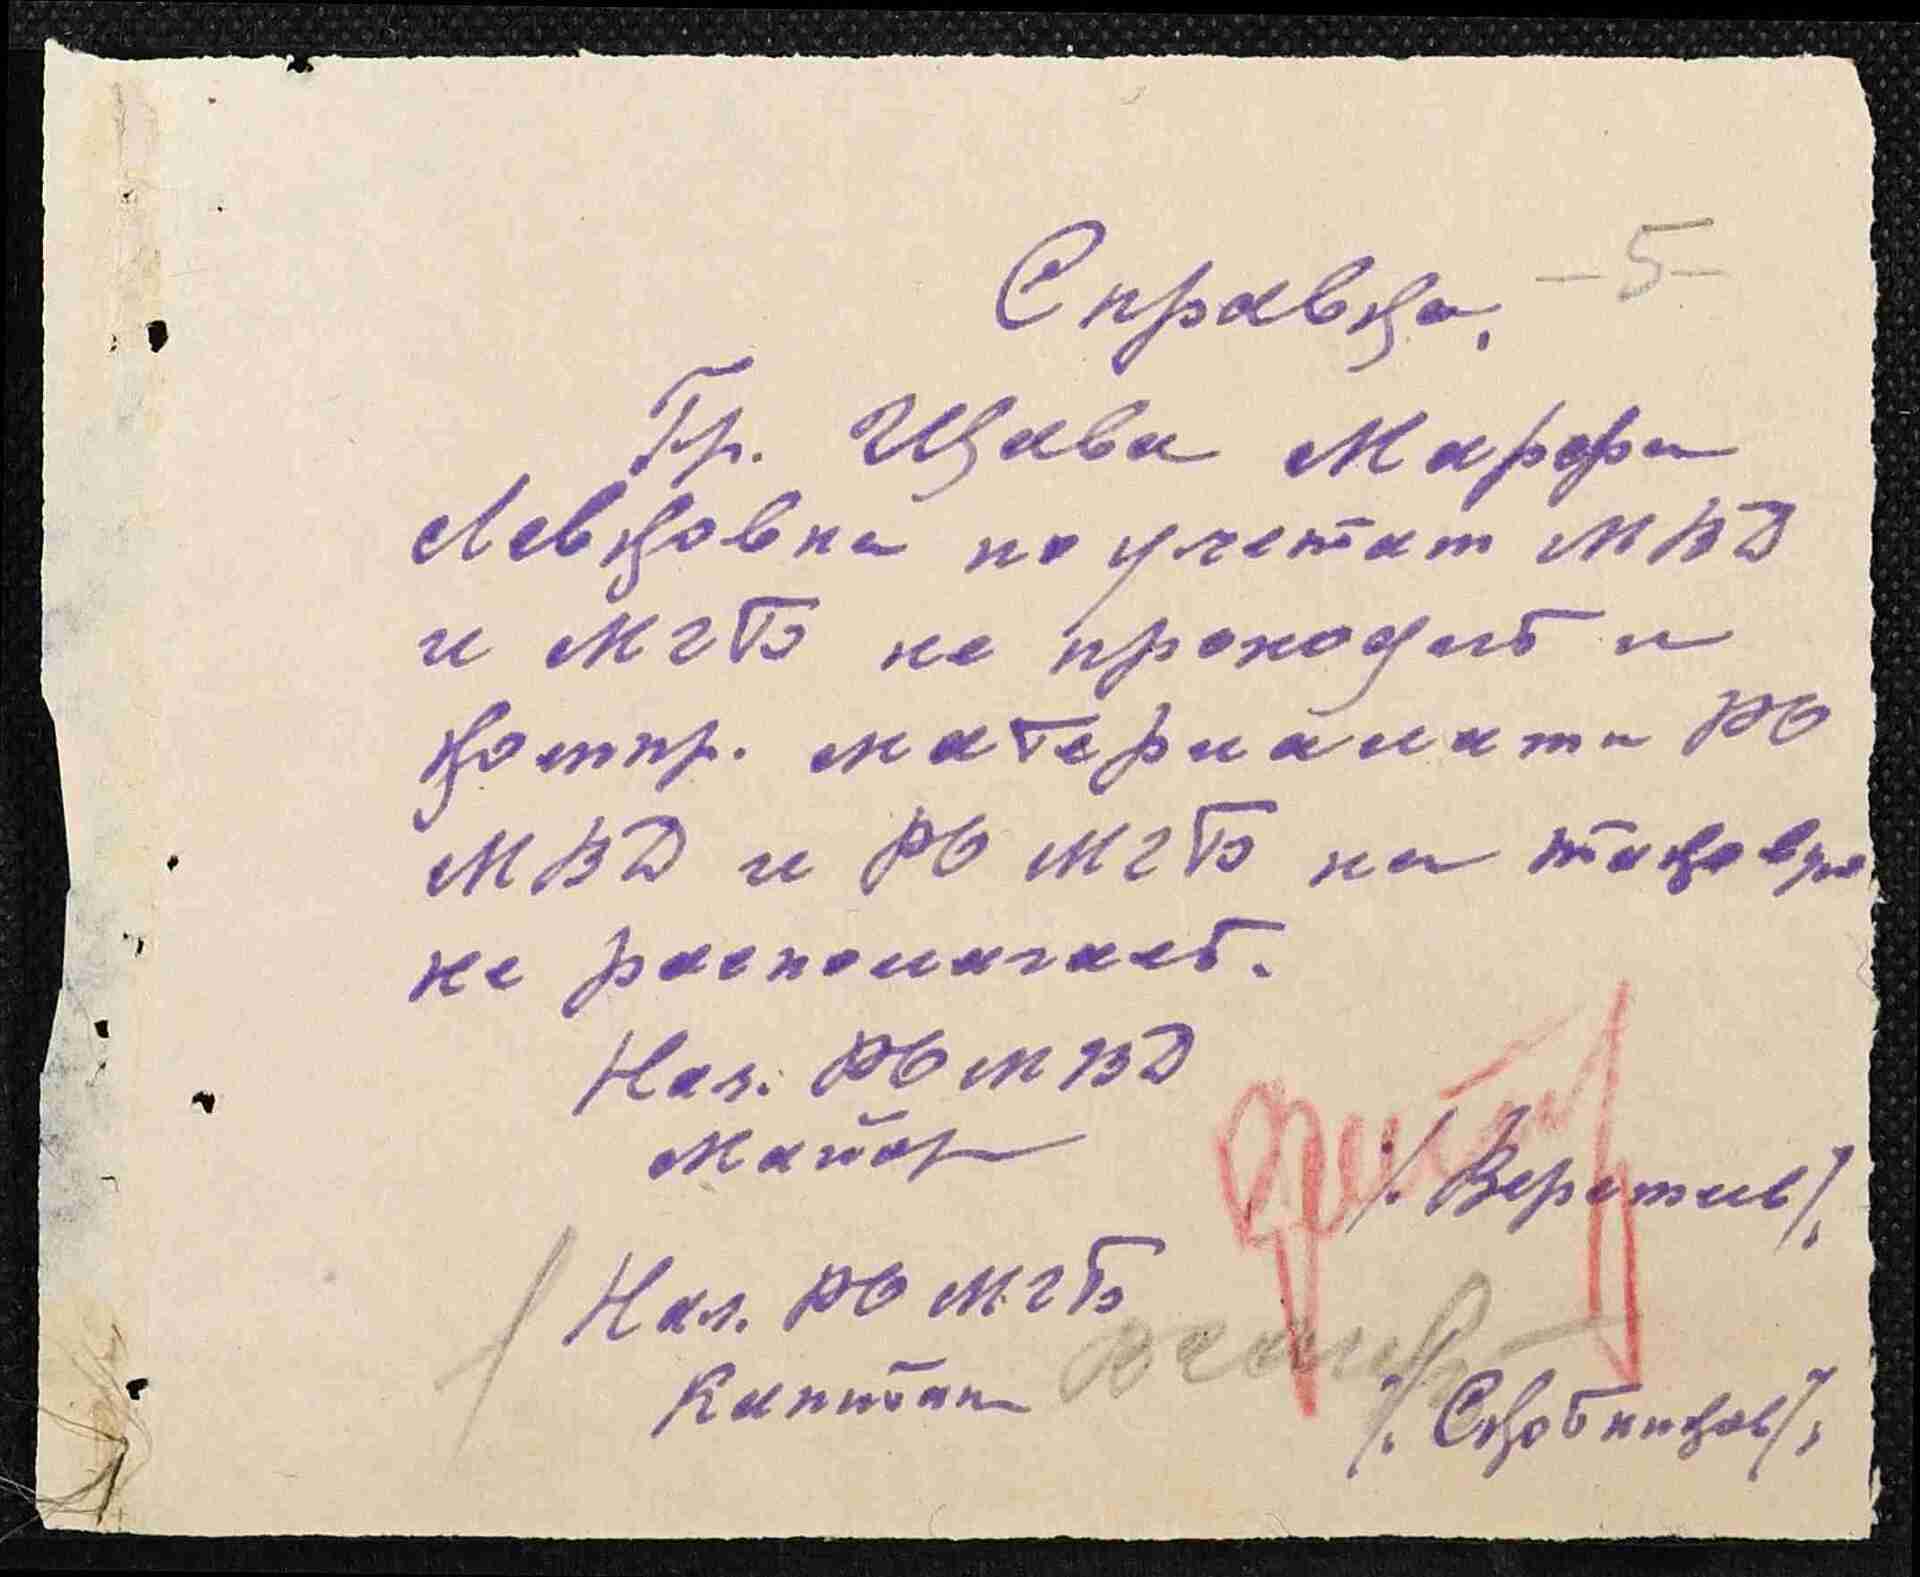 Справка. -5-
Гр. Щава Марфа
Левковна по учетам МВД
и МГБ не проходит и
компр. материалами РО
МВД и РО МГБ на таковую
не располагает.
Нач. РО МВД
Майор /Веретив/.
Нач. РО МГБ
Капитан /Скобников/.